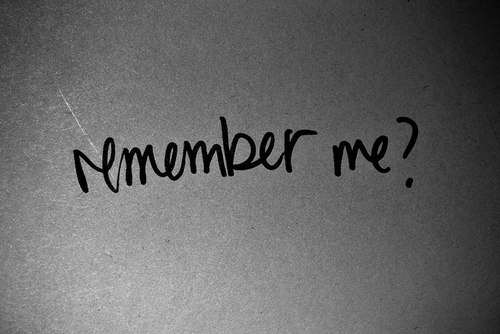 remember me?